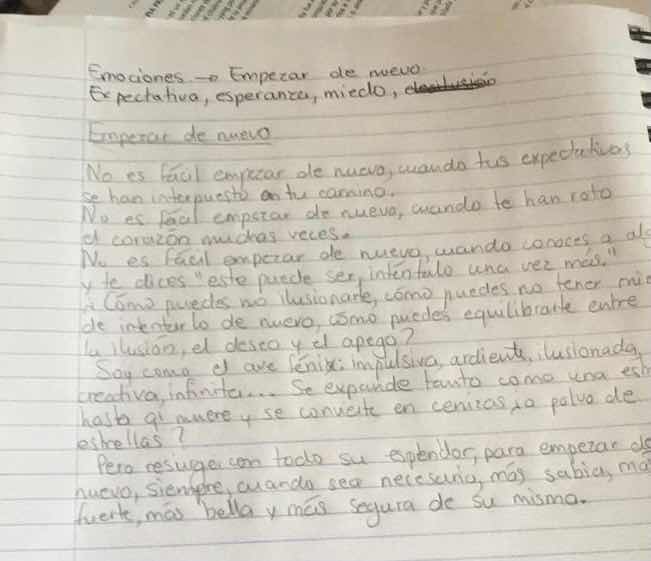 Emociones → Empezar de nuevo.
Expectativa, esperanza, miedo,
Empezar de nuevo
No es fácil empezar de nuevo, cuando tus expectativas
se han interpuesto en tu camino.
No es fácil empezar de nuevo, cuando te han roto
el corazón muchas veces.
No es fácil empezar de nuevo, cuando conoces a al
y te dices "este puede ser, inténtalo una vez más."
¿Cómo puedes no ilusionarte, cómo puedes no tener mie
de intentarlo de nuevo, cómo puedes equilibrarte entre
la ilusión, el deseo y el apego?
Soy como el ave fénix: impulsiva, ardiente, ilusionada,
creativa, infinita... Se expande tanto como una est
hasta q muere y se convierte en cenizas ¿o polvo de
estrellas?
Pero resurge con todo su esplendor, para empezar de
nuevo, siempre, cuando sea necesario, más sabia, má
fuerte, más bella y más segura de su misma.